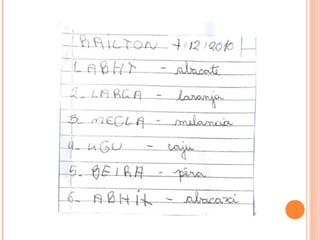 RAILTON 7/12/2010
1. ABHT - abacate
2. LARGA - laranja
3. MECLA - melancia
4. UGU - caju
5. BEIRA - pêra
6. ABHIX - abacaxi